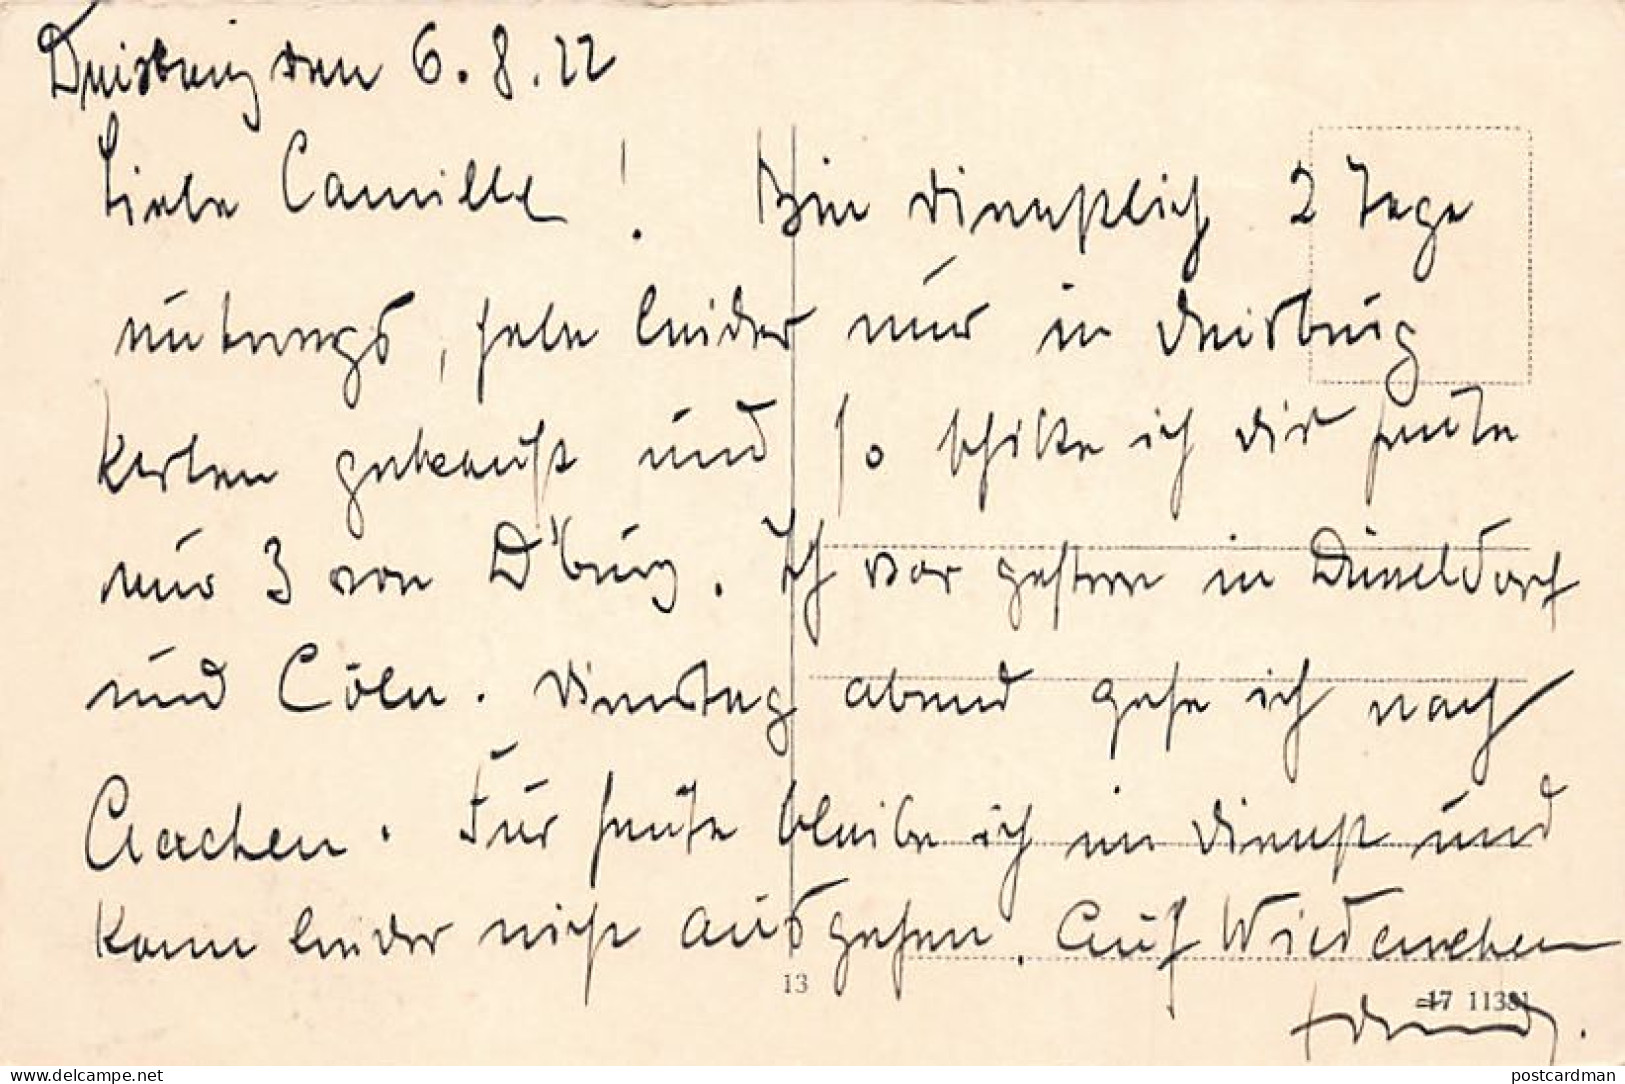 Duisburg den 6.8.22
Liebe Camille! Bin dienstlich 2 Tage
unterwegs, habe leider nur in Duisburg
Karten gekauft und so schicke ich dir heute
nur 3 von D'burg. Ich war gestern in Düsseldorf
und Cöln. Dienstag abend gehe ich nach
Aachen. Für heute bleibe ich im Dienst und
kann leider nicht ausgehen. Auf Wiedersehen
13
17 11381
postcardman
delcampe.net